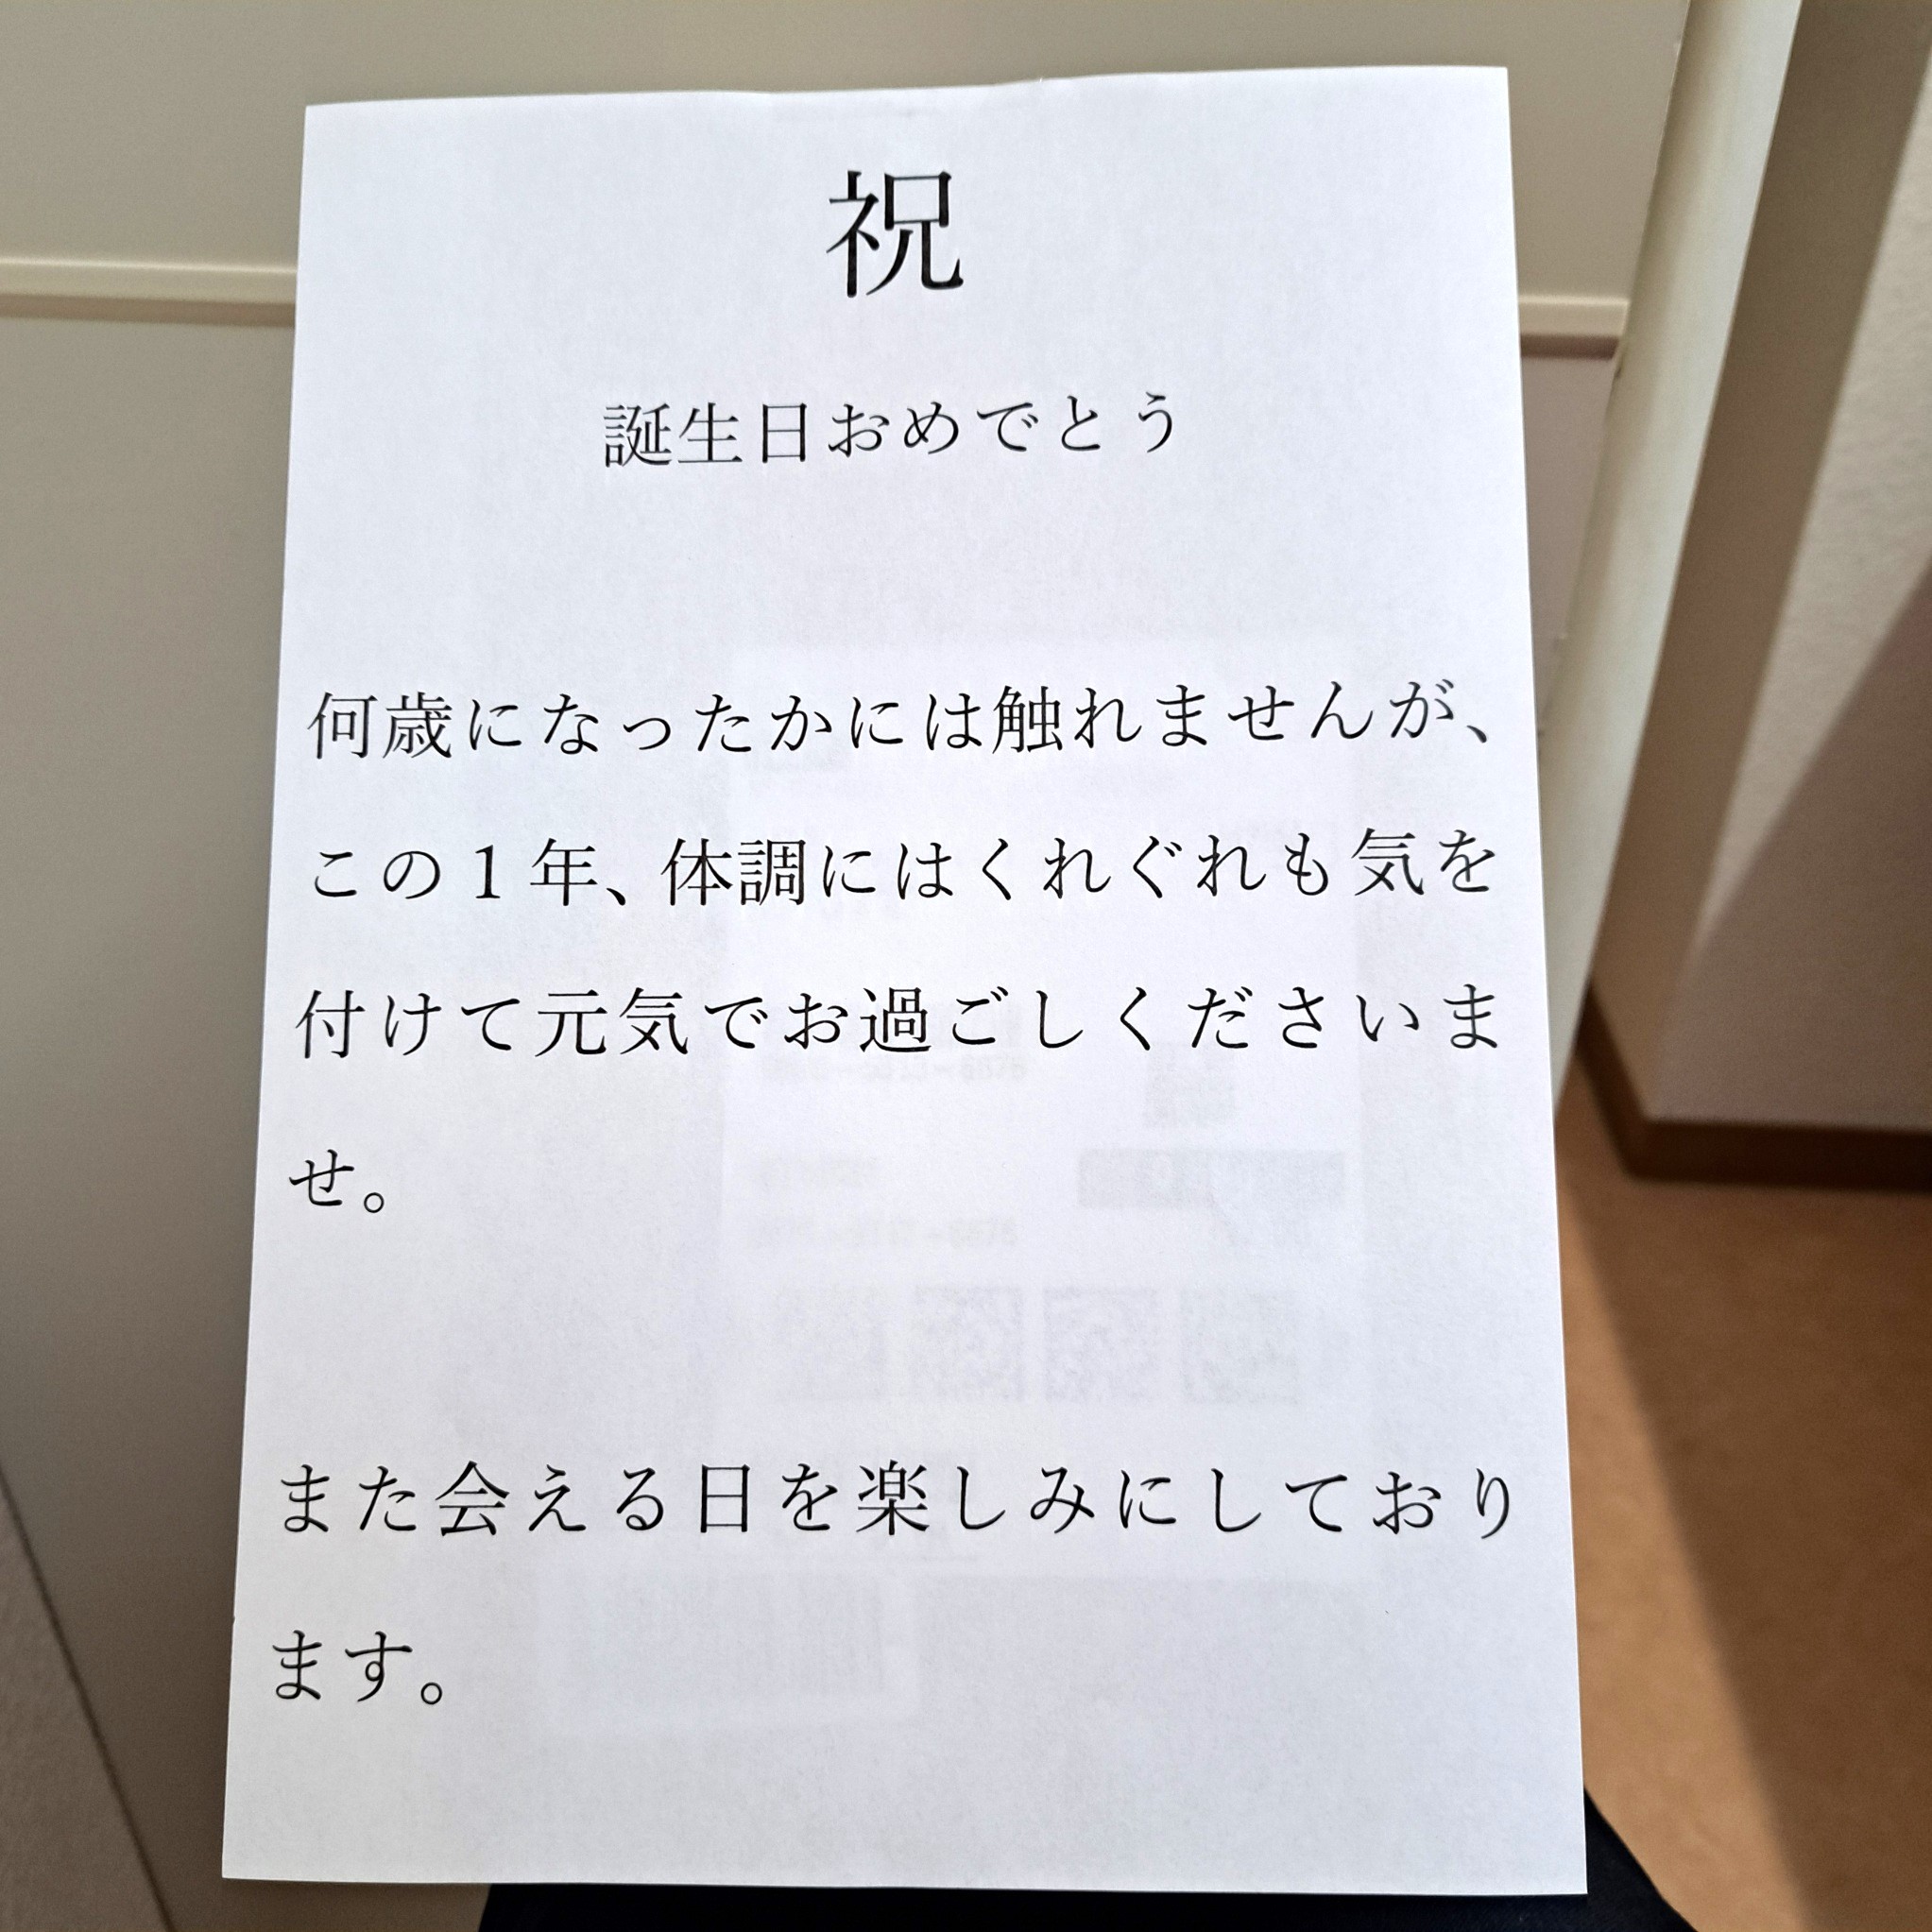 祝
誕生日おめでとう
何歳になったかには触れませんが、
この1年、体調にはくれぐれも気を
付けて元気でお過ごしくださいま
せ。
また会える日を楽しみにしており
ます。